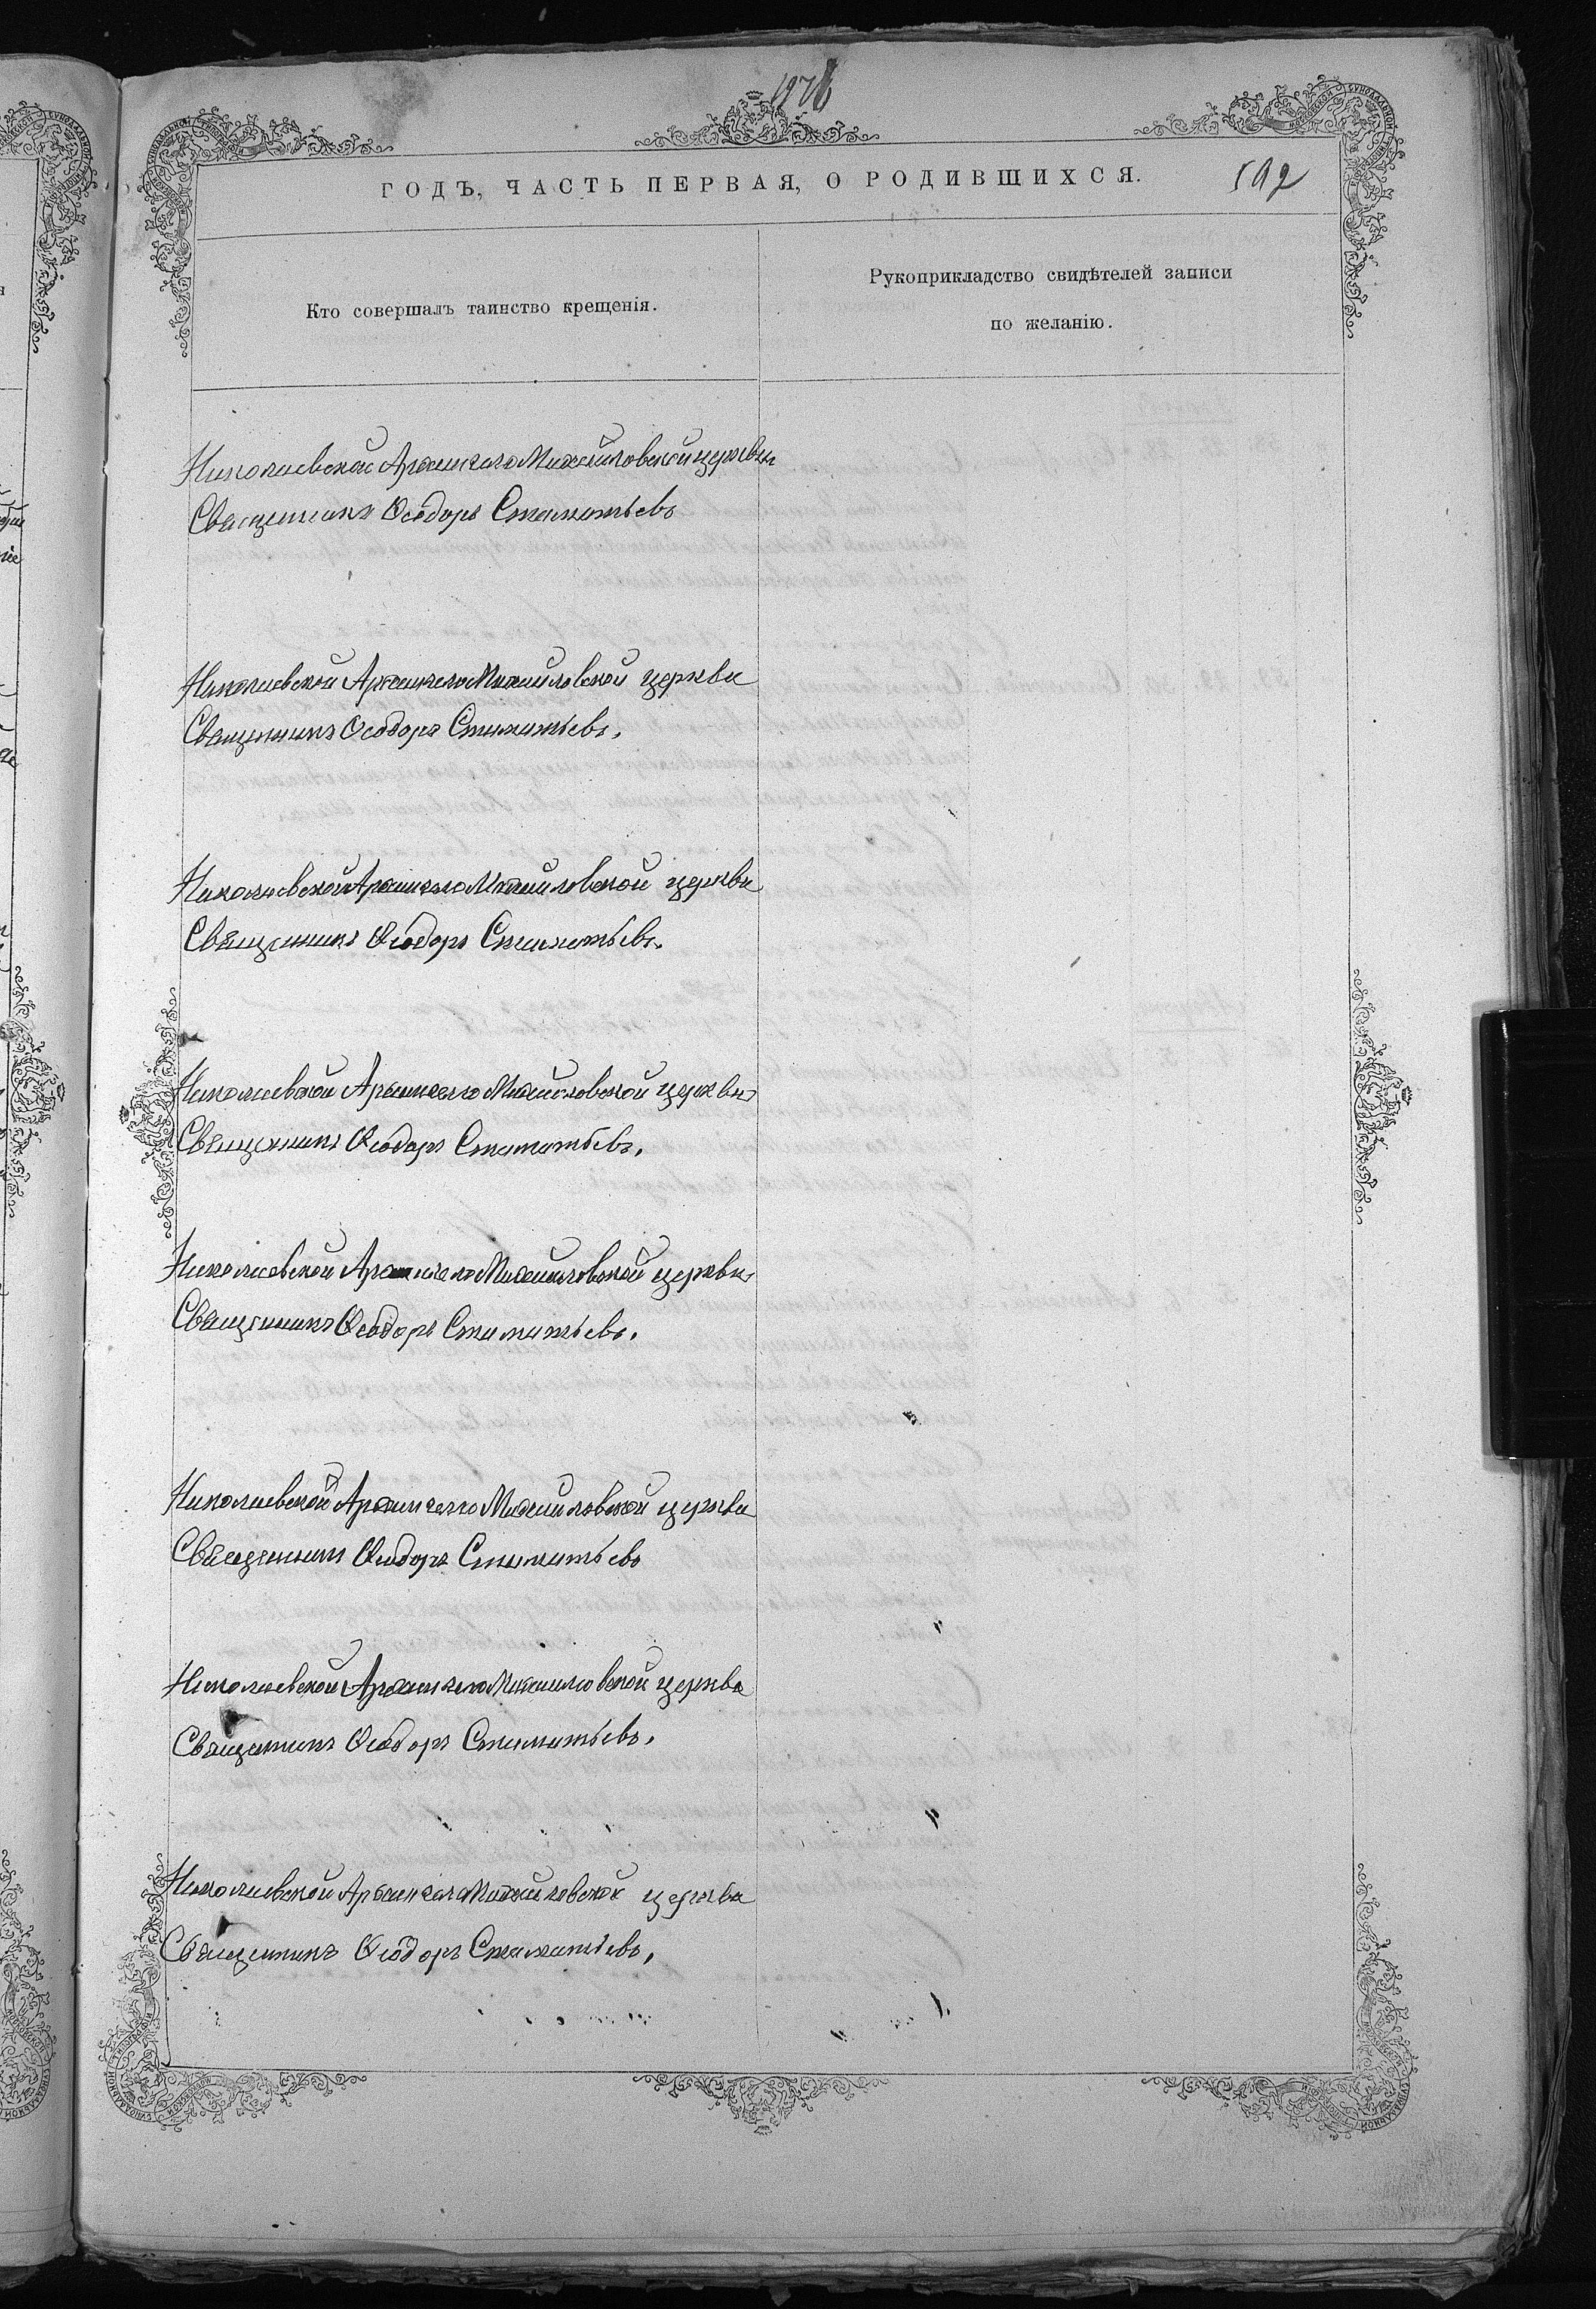 ГОДЪ, ЧАСТЬ ПЕРВАЯ, О РОДИВШИХСЯ.
Кто совершалъ таинство крещенія.
Рукоприкладство свидѣтелей записи
по желанію.
Николаевской Архангело Михайловской церкви
Священникъ Ѳеодоръ Стаматьевъ
Николаевской Архангело Михайловской церкви
Священникъ Ѳеодоръ Стаматьевъ.
Николаевской Архангело Михайловской церкви
Священникъ Ѳеодоръ Стаматьевъ.
Николаевской Архангело Михайловской церкви
Священникъ Ѳеодоръ Стаматьевъ.
Николаевской Архангело Михайловской церкви
Священникъ Ѳеодоръ Стаматьевъ.
Николаевской Архангело Михайловской церкви
Священникъ Ѳеодоръ Стаматьевъ
Николаевской Архангело Михайловской церкви
Священникъ Ѳеодоръ Стаматьевъ.
Николаевской Архангело Михайловской церкви
Священникъ Ѳеодоръ Стаматьевъ.